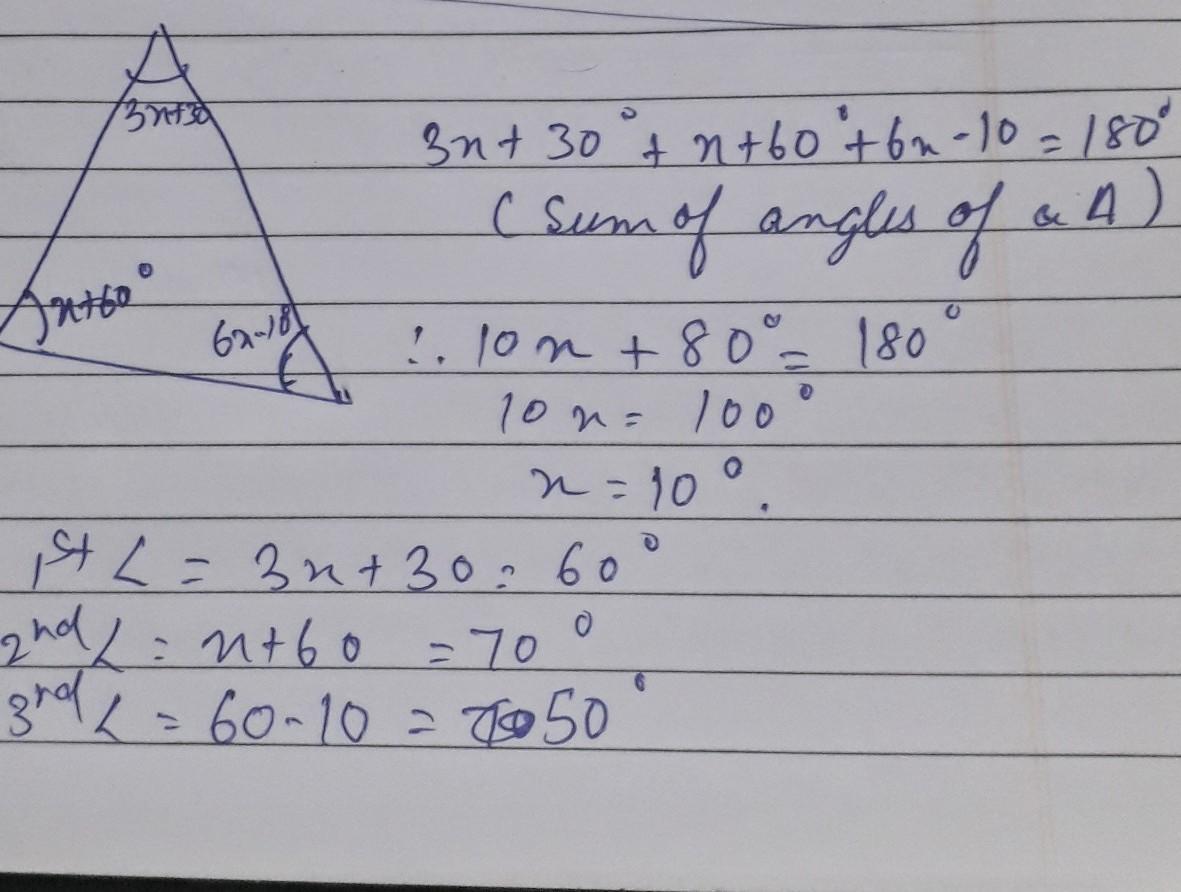 3x+30
x+60°
6x-10
3x + 30° + x+60° + 6x - 10 = 180°
(Sum of angles of a Δ)
∴ 10x + 80° = 180°
10x = 100°
x = 10°.
1st ∠ = 3x + 30 = 60°
2nd ∠ = x+60 = 70°
3rd ∠ = 60-10 = 50°